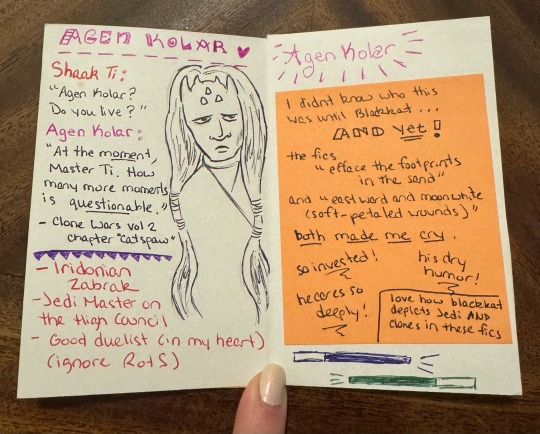 AGEN KOLAR
Shaak Ti:
"Agen Kolar?
Do you live?"
Agen Kolar:
"At the moment,
Master Ti. How
many more moments
is questionable."
- Clone Wars vol 2
chapter "Catspaw"
- Iridonian
Zabrak
- Jedi Master on
the High Council
- Good duelist (in my heart)
(ignore RotS)
Agen Kolar
I didn't know who this
was until Blackkat...
AND yet!
the fics
"efface the footprints
in the sand"
and "eastward and moonwhite
(soft-petaled wounds)"
both made me cry.
so invested!
his dry
humor!
he cares so
deeply!
love how blackkat
depicts Jedi AND
Clones in these fics